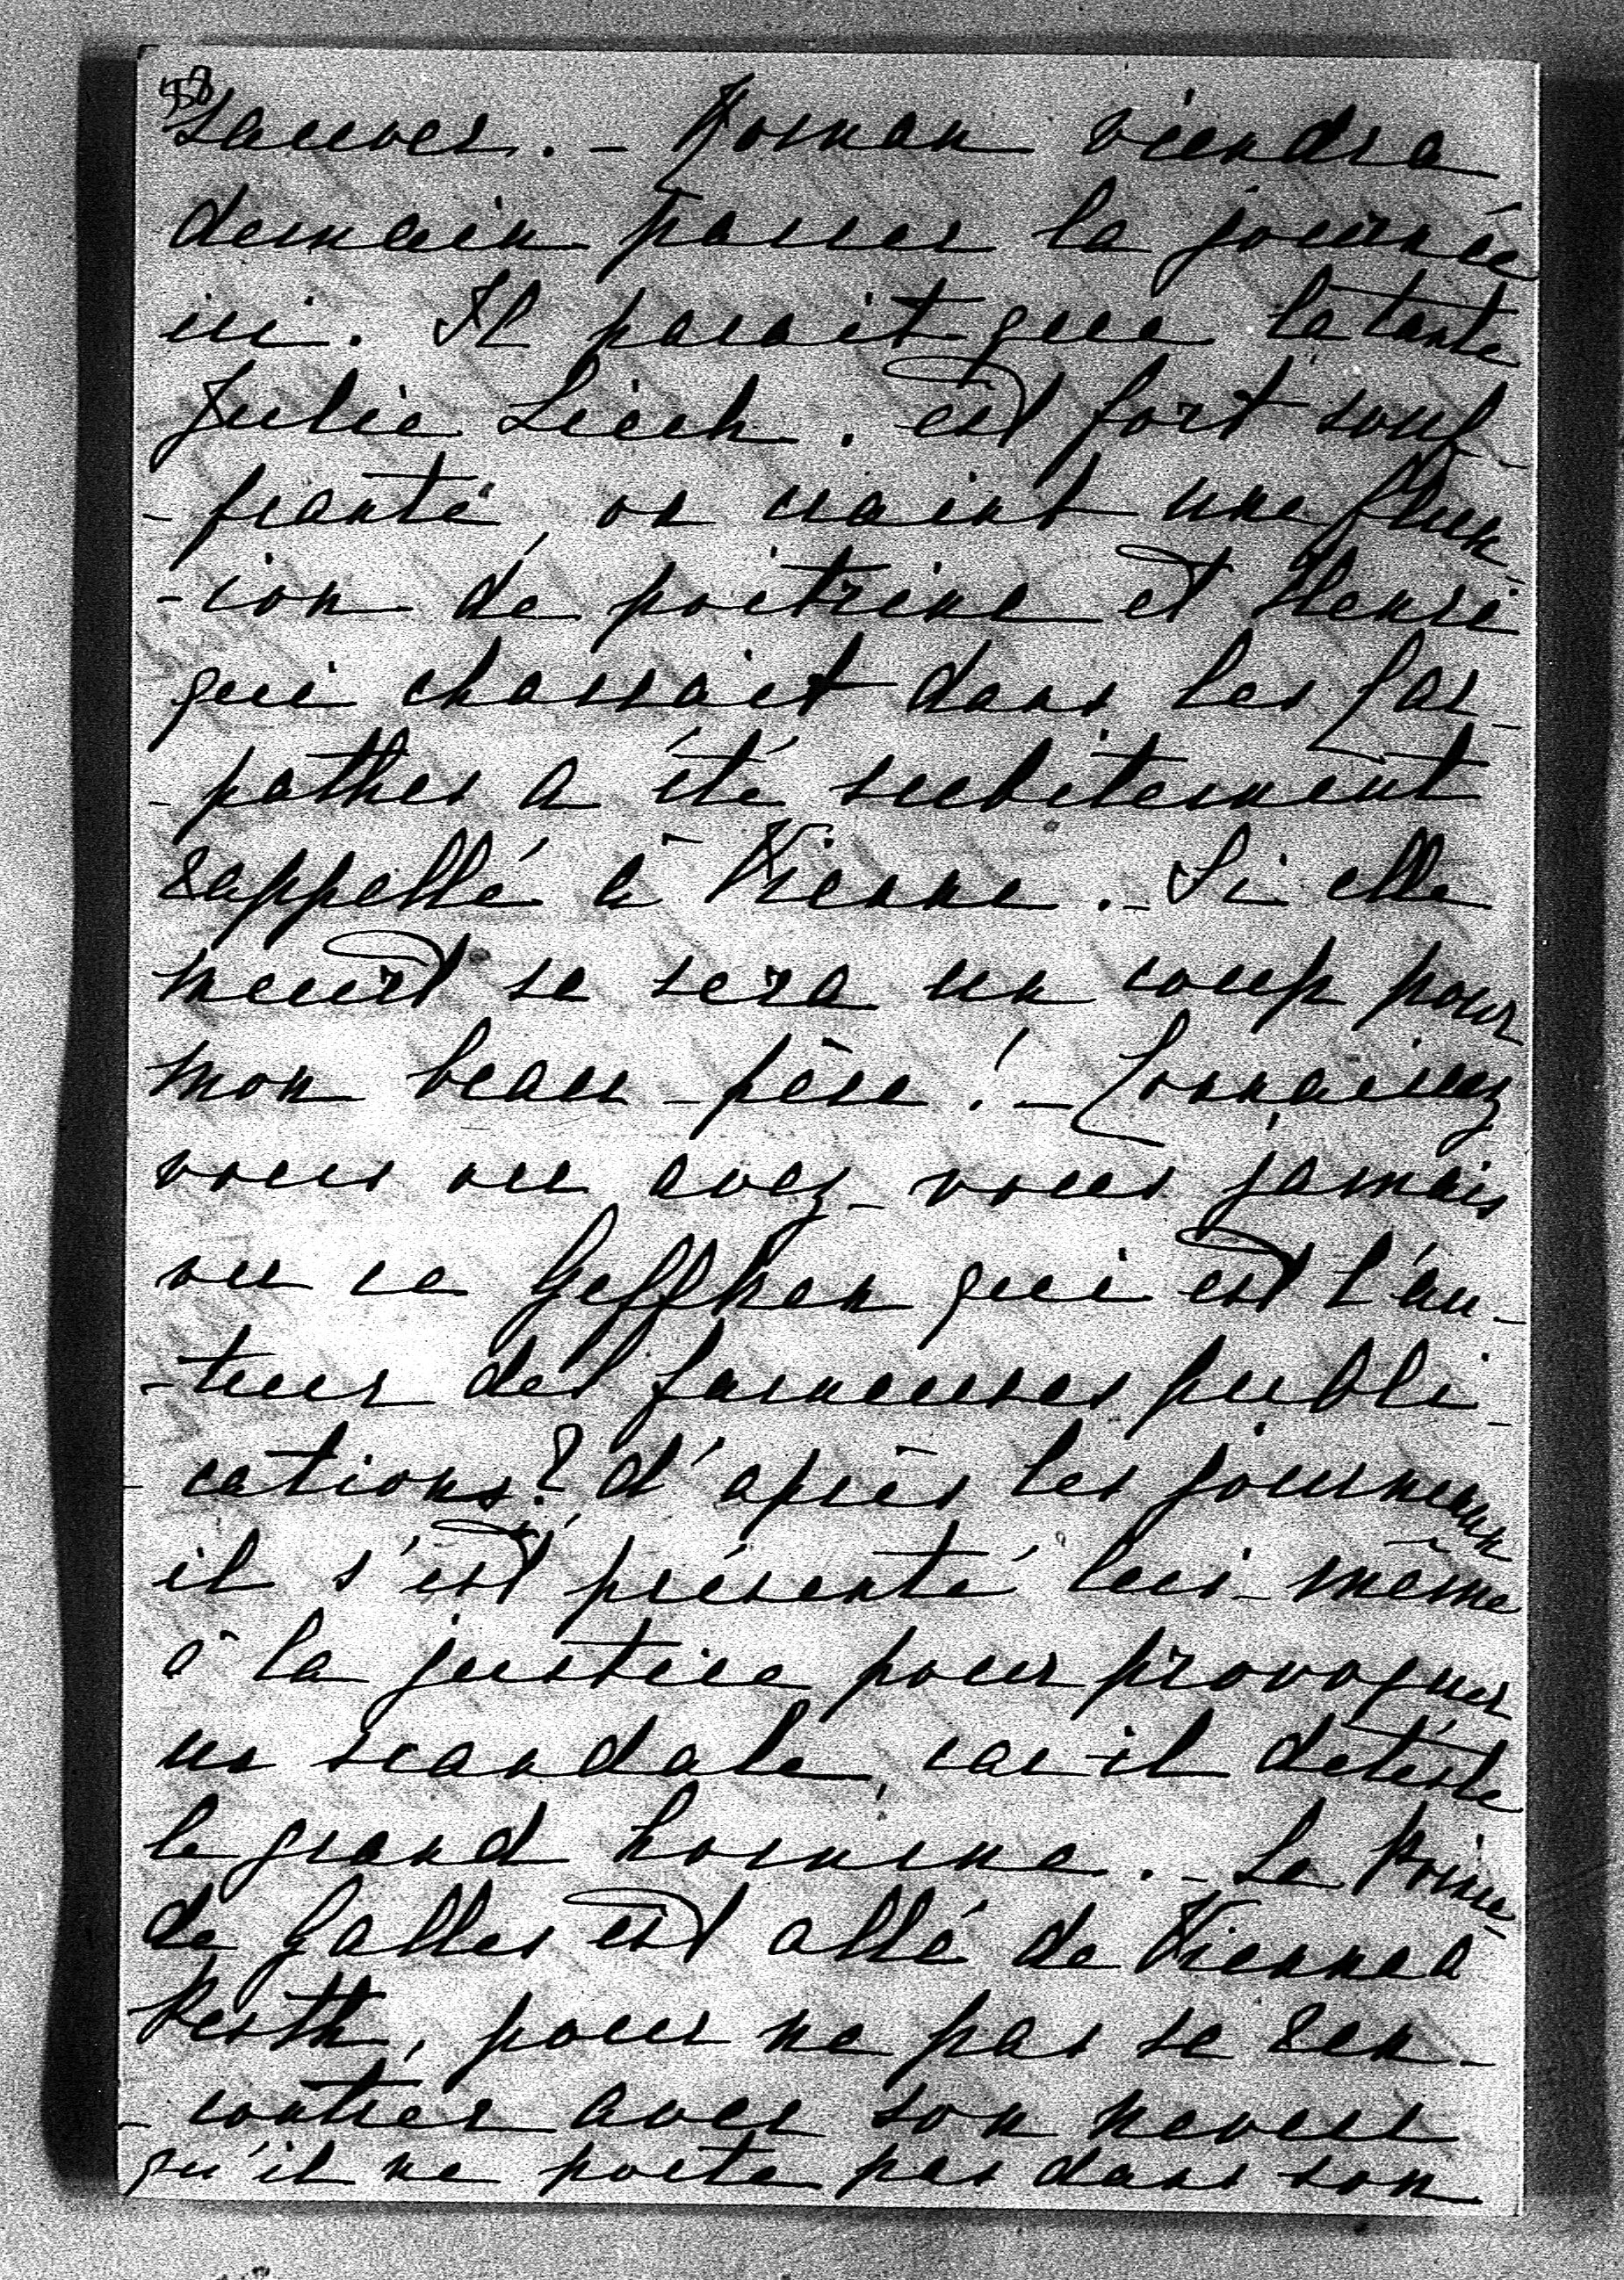 sauver. - Roman viendra
demain passer la journée
ici. Il parait que la tante
Julie Liech. est fort souf-
-frante, on craint une flux-
-ion de poitrine et Henri
qui chassait dans les Car-
-pathes a été subitement
rappellé à Vienne. - Si elle
meurt se sera un coup pour
mon beau-père! - Connaissez
vous ou avez-vous jamais
vu ce Geffken qui est l'au-
-teur des fameuses publi-
-cations? d'après les journaux
il s'est présenté lui-même
à la justice pour provoquer
un scandale, car il déteste
le grand homme. - Le Prince
de Galles est allé de Vienne à
Pesth, pour ne pas se ren-
-contrer avec son neveu
qu'il ne porte pas dans son